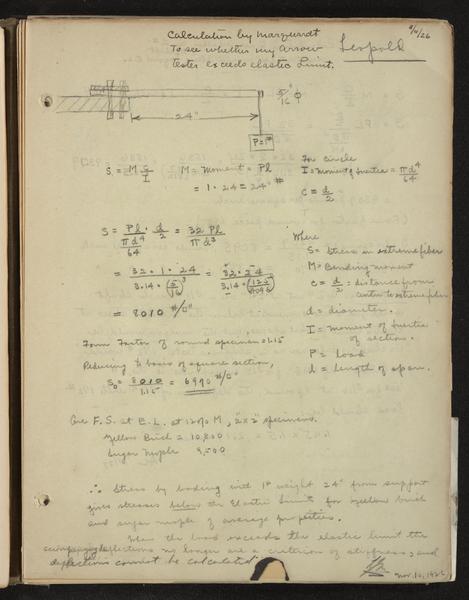 5/4/26
Calculation by Marquardt
to see whether my arrow
tester exceeds elastic limit.
Leopold
5/16" φ
24"
P=1#
S = M c/I   M = Moment = Pl
= 1 · 24 = 24"#
For circle
I = Moment of Inertia = πd⁴/64
c = d/2
S = Pl/(πd⁴/64) · d/2 = 32 Pl/πd³
= 32·1·24/3.14·(5/16)³ = 32·24/3.14·(125/4096)
= 8010 #/□"
Where
S = Stress in extreme fiber
M = Bending moment
c = d/2 = distance from
center to extreme fiber
d = diameter.
I = moment of Inertia
of section.
P = load
l = length of span.
Form Factor of round specimen = 1.15
Reducing to basis of square section,
S₀ = 8010/1.15 = 6970 #/□"
F.S. at E.L. at 12% M, 2"x2" specimens.
Yellow Birch = 10,800
Sugar Maple 9,500
∴ Stress by loading with 1# weight 24" from support
gives stresses below the Elastic Limit for Yellow birch
and sugar maple of average properties.
When the load exceeds the elastic limit the
accompanying deflections no longer are a criterion of stiffness, and
deflections cannot be calculated
Nov. 10, 192